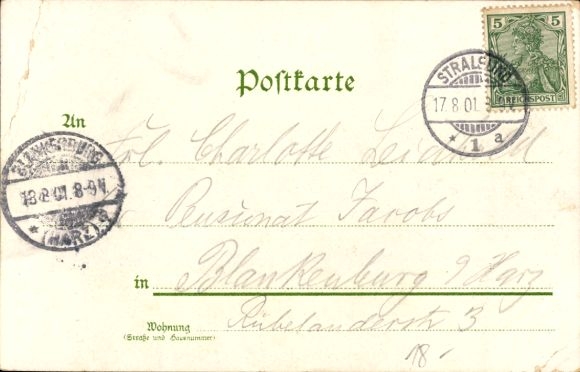 5 5
REICHSPOST
STRALSUND
17.8.01.
* 1 a
Postkarte
An Frl. Charlotte
BLANKENBURG
18.8.01.8-9V.
* (HARZ)
Pensionat Jacobs
in Blankenburg a/Harz
Wohnung Rübelanderstr. 3
(Straße und Hausnummer)
18.